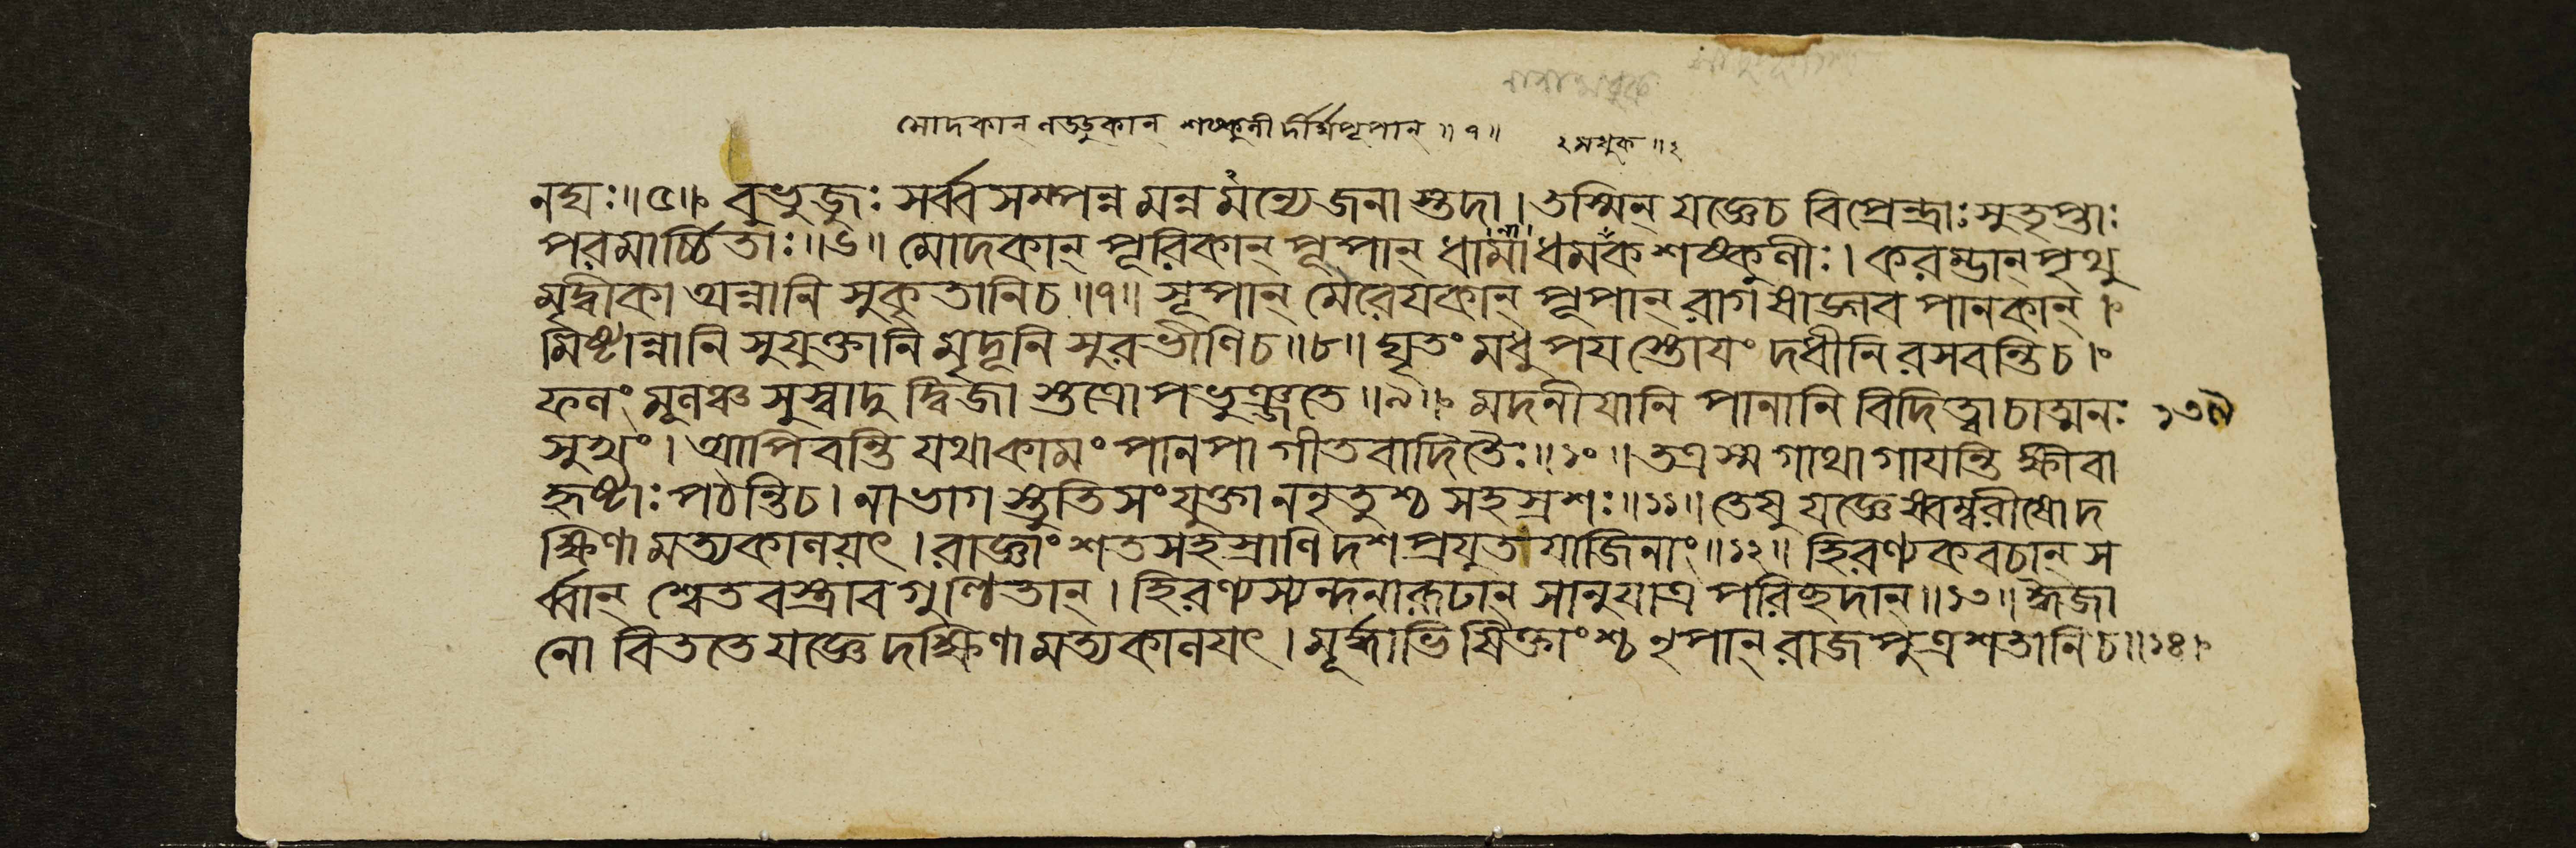 মোদকান্ ণড্ডুকান্ শষ্কুনী র্দীর্ঘপূপান্ ॥ ৭ ॥
২ মধুক ॥ ২
নদ্যঃ ॥ ৫ ॥ বুভুজুঃ সর্ব্বসম্পন্নমন্নমন্যে জনাস্তদা । তস্মিন্ যজ্ঞেচ বিপ্রেন্দ্রাঃ সুতৃপ্তাঃ
পরমার্চ্চিতাঃ ॥ ৬ ॥ মোদকান্ পূরিকান্ পূপান্ শষ্কুণীঃ । করম্ভান্ পৃথু
মৃদ্বীকা অন্নানি সুকৃতানিচ ॥ ৭ ॥ সূপান্ মৈরেযকান্ পূপান্ রাগষাড্ডবপানকান্ ।
মিষ্টান্নানি সুযুক্তানি মৃদূনি সুরভীণিচ ॥ ৮ ॥ ঘৃতং মধুপযস্তোযং দধীনি রসবন্তিচ ।
ফণং মূণঞ্চ সুস্বাদু দ্বিজাস্তত্রোপভুঞ্জতে ॥ ৯ ॥ মদনীযানি পানানি বিদিত্বা চাত্মনঃ
সুখং । আপিবন্তি যথাকামং পানপা গীতবাদিতৈঃ ॥ ১০ ॥ তত্রস্ম গাথা গাযন্তি ক্ষীবা
হৃষ্টাঃ পঠন্তিচ । নাভাগস্তুতিসংযুক্তা ননৃতুশ্চ সহস্রশঃ ॥ ১১ ॥ তেষু যজ্ঞেষ্বম্বরীষো দ
ক্ষিণামত্যকাণয়ৎ । রাজ্ঞাং শতসহস্রাণি দশপ্রযুতযাজিনাং ॥ ১২ ॥ হিরণ্যকবচান্ স
র্ব্বান্ শ্বেতবস্ত্রাবগুণ্ঠিতান্ । হিরণ্যস্যন্দনারূঢান্ সানুযাত্রপরিচ্ছদান্ ॥ ১৩ ॥ ঈজা
নো বিততে যজ্ঞে দক্ষিণামত্যকাণযৎ । মূর্দ্ধাভিষিক্তাংশ্চ নৃপান্ রাজপুত্রশতানিচ ॥ ১৪ ॥